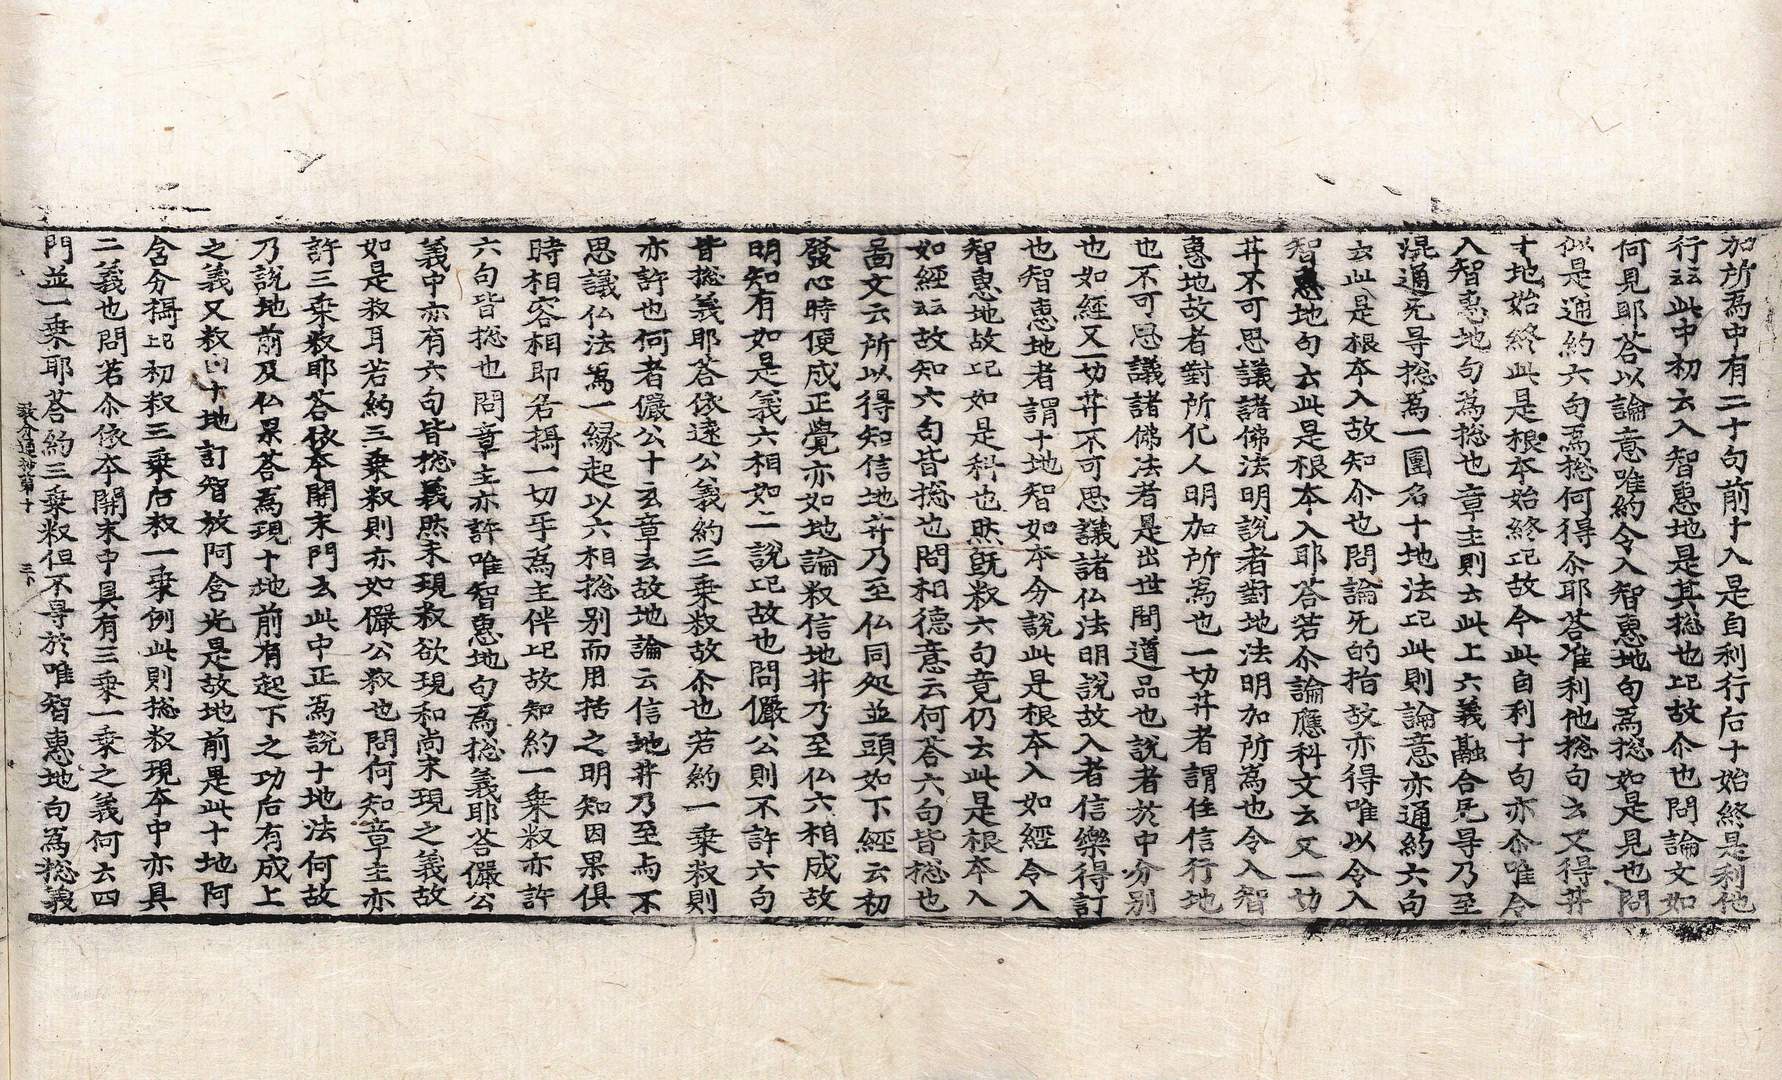 加所為中有二十句前十入是自利行后十始終是利他
行㘴此中初云入智惠地是其捴也記故尒也問論文如
何見耶答以論意唯約令入智惠地句為捴如是見也問
似是通約六句為捴何得尒耶答准利他捴句云又得井
十地始終此是根本始終記故今此自利十句亦尒唯令
入智惠地句為捴也章主則云此上六義融合旡寻乃至
混通旡寻捴為一團名十地法記此則論意亦通約六句
云此是根本入故知尒也問論旡的指故亦得唯以令入
智惠地句云此是根本入耶答若尒論應科文云又一切
井不可思議諸佛法明說者對地法明加所為也令入智
惠地故者對所化人明加所為也一切井者謂住信行地
也不可思議諸佛法者是出世間道品也說者於中分別
也如經又一切井不可思議諸仏法明說故入者信樂得訂
也智惠地者謂十地智如本分說此是根本入如經令入
智惠地故記如是科也然旣敎六句竟仍云此是根本入
如經㘴故知六句皆捴也問相德意云何答六句皆捴也
啚文云所以得知信地井乃至仏同処並頭如下經云初
發心時便成正覺亦如地論敎信地井乃至仏六相成故
明知有如是義六相如二說記故也問儼公則不許六句
皆捴義耶答依遠公義約三乗敎故尒也若約一乗敎則
亦許也何者儼公十玄章云故地論云信地井乃至与不
思議仏法為一縁起以六相捴別而用括之明知因果俱
時相容相即各攝一切乎為主伴記故知約一乗敎亦許
六句皆捴也問章主亦許唯智惠地句為捴義耶答儼公
義中亦有六句皆捴義然末現敎欲現和尚末現之義故
如是敎耳若約三乗敎則亦如儼公敎也問何知章主亦
許三乗敎耶答依本開末門云此中正為說十地法何故
乃說地前及仏果答為現十地前有起下之功后有成上
之義又敎曰十地訂智放阿含光是故地前是此十地阿
含分攝記初敎三乗后敎一乗例此則捴敎現本中亦具
二義也問若尒依本開末中具有三乗一乗之義何云四
門並一乗耶答約三乗敎但不寻於唯智惠地句為捴義
敎分通抄第十 三下